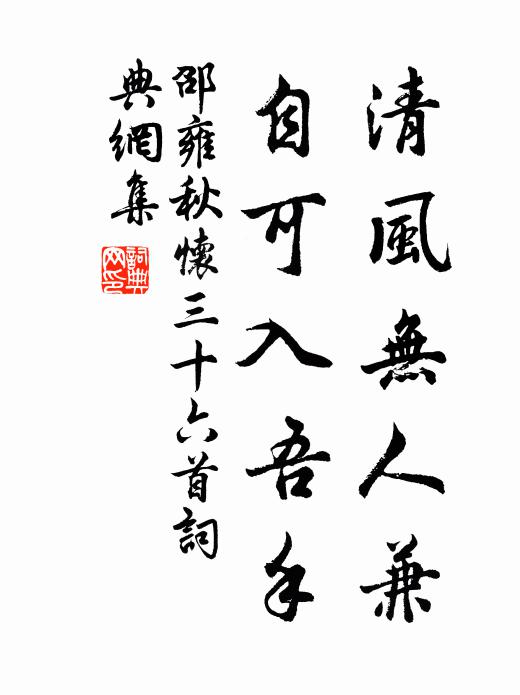 清風無人兼
自可入吾手
邵雍秋懷三十六首詞
典網集
詞典
网印